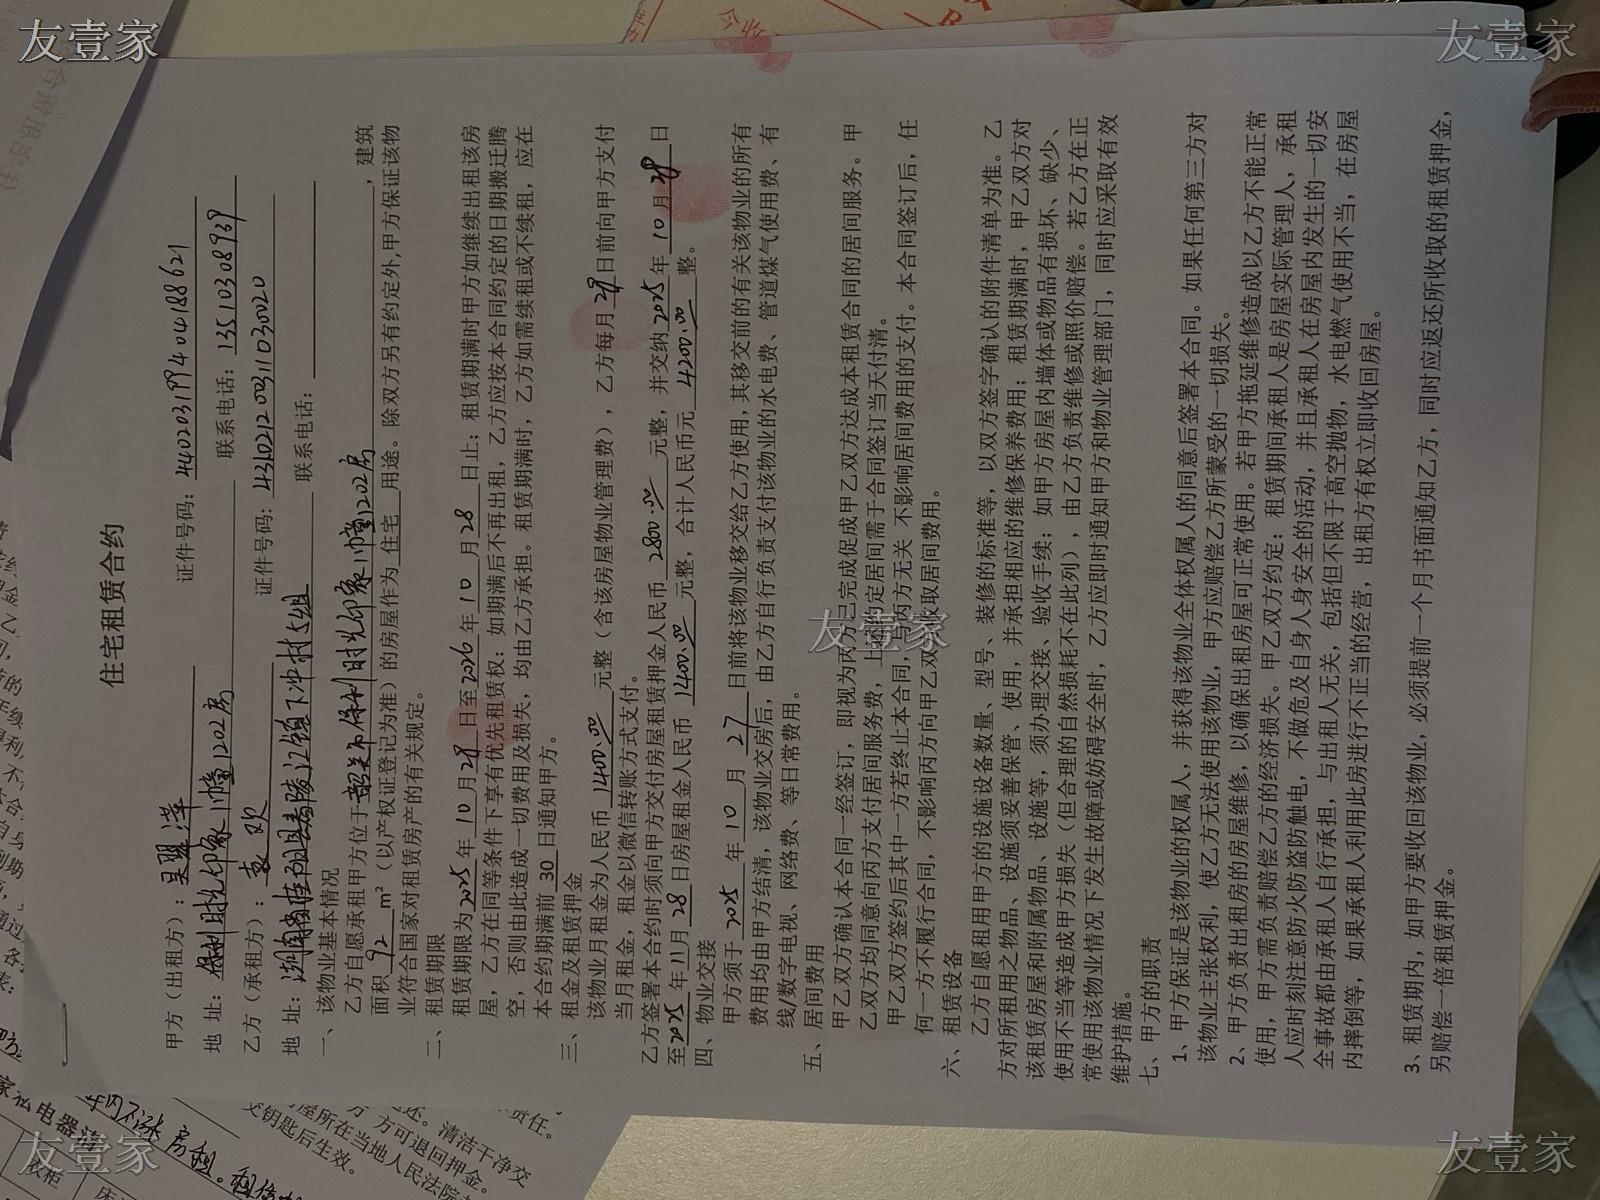 友壹家
友壹家
住宅租赁合约
甲方（出租方）：吴翠萍 证件号码：440203199404188621
地 址：保利时光印象1幢1202房 联系电话：13510308939
乙方（承租方）：袁欢 证件号码：431021200311030020
地 址：湖南省桂阳县春陵江镇下冲村5组 联系电话：
一、 该物业基本情况
乙方自愿承租甲方位于韶关市保利时光印象1幢1202房，建筑
面积 92 m²（以产权证登记为准）的房屋作为 住宅 用途。除双方另有约定外,甲方保证该物
业符合国家对租赁房产的有关规定。
二、 租赁期限
租赁期限为 2025 年 10 月 28 日至 2026 年 10 月 28 日止；租赁期满时甲方如继续出租该房
屋，乙方在同等条件下享有优先租赁权；如期满后不再出租，乙方应按本合同约定的日期搬迁腾
空，否则由此造成一切费用及损失，均由乙方承担。租赁期满时，乙方如需续租或不续租，应在
本合约期满前 30 日通知甲方。
三、 租金及租赁押金
该物业月租金为人民币 1400.00 元整（含该房屋物业管理费），乙方每月 28 日前向甲方支付
当月租金，租金以微信转账方式支付。
乙方签署本合约时须向甲方交付房屋租赁押金人民币 2800.00 元整，并交纳 2025 年 10 月 28 日
至 2025 年 11 月 28 日房屋租金人民币 1400.00 元整，合计人民币元 4200.00 整。
四、 物业交接
甲方须于 2025 年 10 月 27 日前将该物业移交给乙方使用，其移交前的有关该物业的所有
费用均由甲方结清，该物业交房后，由乙方自行负责支付该物业的水电费、管道煤气使用费、有
线/数字电视、网络费、等日常费用。
五、 居间费用
甲乙双方确认本合同一经签订，即视为丙方已完成促成甲乙双方达成本租赁合同的居间服务。甲
乙双方均同意向丙方支付居间服务费，上述约定居间需于合同签订当天付清。
甲乙双方签约后其中一方若终止本合同，与丙方无关，不影响居间费用的支付。本合同签订后，任
何一方不履行合同，不影响丙方向甲乙双方收取居间费用。
六、 租赁设备
乙方自愿租用甲方的设施设备数量、型号、装修的标准等，以双方签字确认的附件清单为准。乙
方对所租用之物品、设施须妥善保管、使用，并承担相应的维修保养费用；租赁期满时，甲乙双方对
该租赁房屋和附属物品、设施等，须办理交接、验收手续；如甲方房屋内墙体或物品有损坏、缺少、
使用不当等造成甲方损失（但合理的自然损耗不在此列），由乙方负责维修或照价赔偿。若乙方在正
常使用该物业情况下发生故障或妨碍安全时，乙方应即时通知甲方和物业管理部门，同时应采取有效
维护措施。
七、甲方的职责
1、甲方保证是该物业的权属人，并获得该物业全体权属人的同意后签署本合同。如果任何第三方对
该物业主张权利，使乙方无法使用该物业，甲方应赔偿乙方所蒙受的一切损失。
2、甲方负责出租房的房屋维修，以确保出租房屋可正常使用。若甲方拖延维修造成以乙方不能正常
使用，甲方需负责赔偿乙方的经济损失。甲乙双方约定：租赁期间承租人是房屋实际管理人，承租
人应时刻注意防火防盗防触电，不做危及自身人身安全的活动，并且承租人在房屋内发生的一切安
全事故都由承租人自行承担，与出租人无关，包括但不限于高空抛物，水电燃气使用不当，在房屋
内摔倒等，如果承租人利用此房进行不正当的经营，出租方有权立即收回房屋。
3、租赁期内，如甲方要收回该物业，必须提前一个月书面通知乙方，同时应返还所收取的租赁押金，
另赔偿一倍租赁押金。
友壹家
家私电器清
衣柜
年内不涨房租。
清洁干净交
方可退回押金。
屋所在当地人民法院
交钥匙后生效。
责任。
友壹家
友壹家